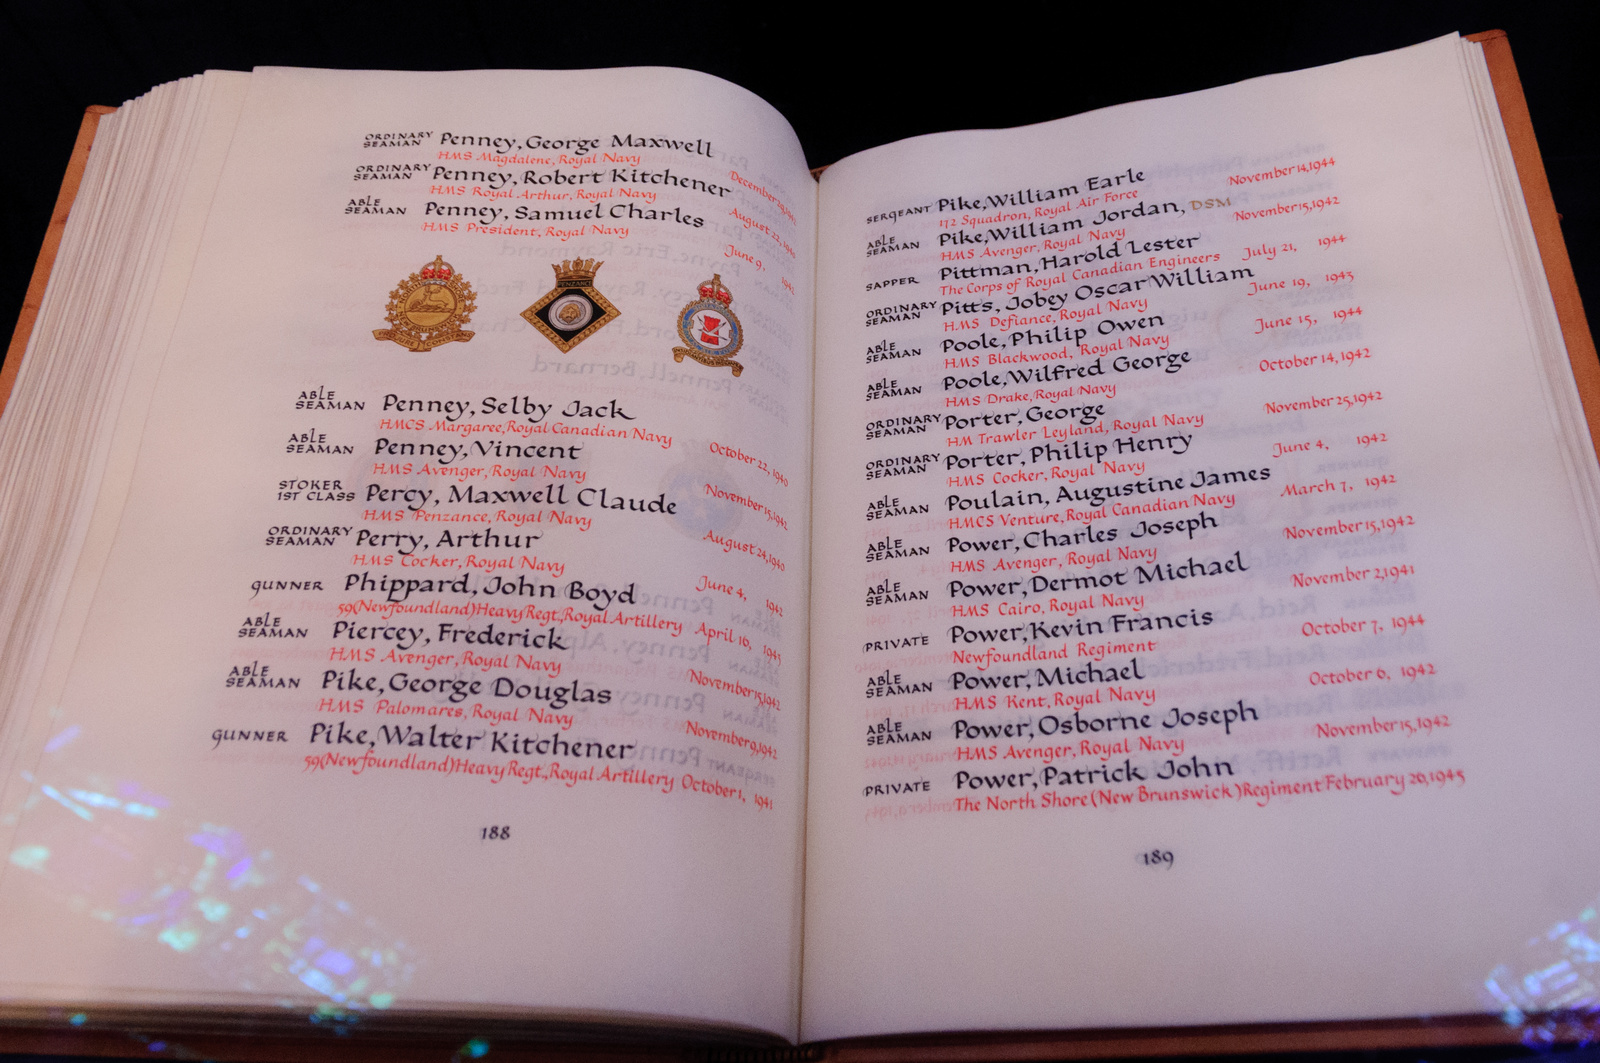 ORDINARY SEAMAN Penney, George Maxwell
HMS Magdalene, Royal Navy December
ORDINARY SEAMAN Penney, Robert Kitchener
HMS Royal Arthur, Royal Navy August 22,
ABLE SEAMAN Penney, Samuel Charles
HMS President, Royal Navy June 9, 1942
PENZANCE
ABLE SEAMAN Penney, Selby Jack
HMCS Margaree, Royal Canadian Navy October 22, 1940
ABLE SEAMAN Penney, Vincent
HMS Avenger, Royal Navy November 15, 1942
STOKER 1ST CLASS Percy, Maxwell Claude
HMS Penzance, Royal Navy August 24, 1940
ORDINARY SEAMAN Perry, Arthur
HMS Cocker, Royal Navy June 4, 1942
GUNNER Phippard, John Boyd
59(Newfoundland)Heavy Regt., Royal Artillery April 16, 1945
ABLE SEAMAN Piercey, Frederick
HMS Avenger, Royal Navy November 15, 1942
ABLE SEAMAN Pike, George Douglas
HMS Palomares, Royal Navy November 9, 1942
GUNNER Pike, Walter Kitchener
59(Newfoundland)Heavy Regt., Royal Artillery October 1, 1941
188
SERGEANT Pike, William Earle
172 Squadron, Royal Air Force November 14, 1944
ABLE SEAMAN Pike, William Jordan, DSM
HMS Avenger, Royal Navy November 15, 1942
SAPPER Pittman, Harold Lester
The Corps of Royal Canadian Engineers July 21, 1944
ORDINARY SEAMAN Pitts, Jobey Oscar William
HMS Defiance, Royal Navy June 19, 1943
ABLE SEAMAN Poole, Philip Owen
HMS Blackwood, Royal Navy June 15, 1944
ABLE SEAMAN Poole, Wilfred George
HMS Drake, Royal Navy October 14, 1942
ORDINARY SEAMAN Porter, George
HM Trawler Leyland, Royal Navy November 25, 1942
ORDINARY SEAMAN Porter, Philip Henry
HMS Cocker, Royal Navy June 4, 1942
ABLE SEAMAN Poulain, Augustine James
HMCS Venture, Royal Canadian Navy March 7, 1942
ABLE SEAMAN Power, Charles Joseph
HMS Avenger, Royal Navy November 15, 1942
ABLE SEAMAN Power, Dermot Michael
HMS Cairo, Royal Navy November 2, 1941
PRIVATE Power, Kevin Francis
Newfoundland Regiment October 7, 1944
ABLE SEAMAN Power, Michael
HMS Kent, Royal Navy October 6, 1942
ABLE SEAMAN Power, Osborne Joseph
HMS Avenger, Royal Navy November 15, 1942
PRIVATE Power, Patrick John
The North Shore (New Brunswick) Regiment February 26, 1945
189